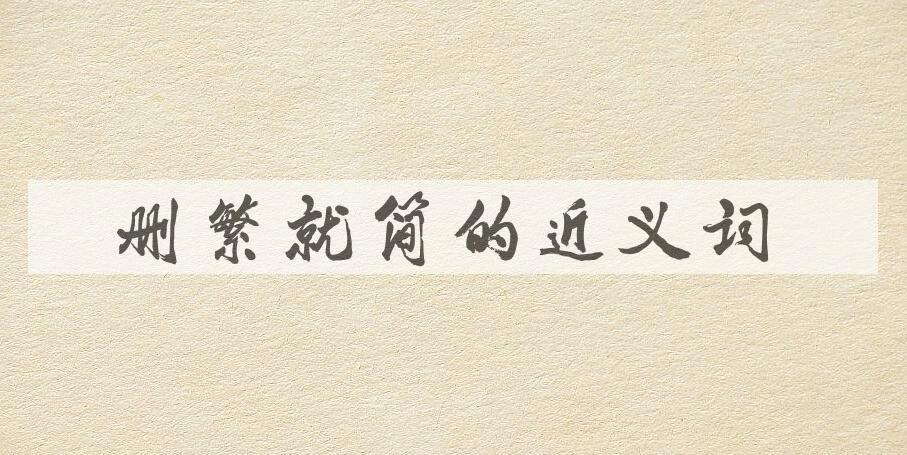 删繁就简的近义词